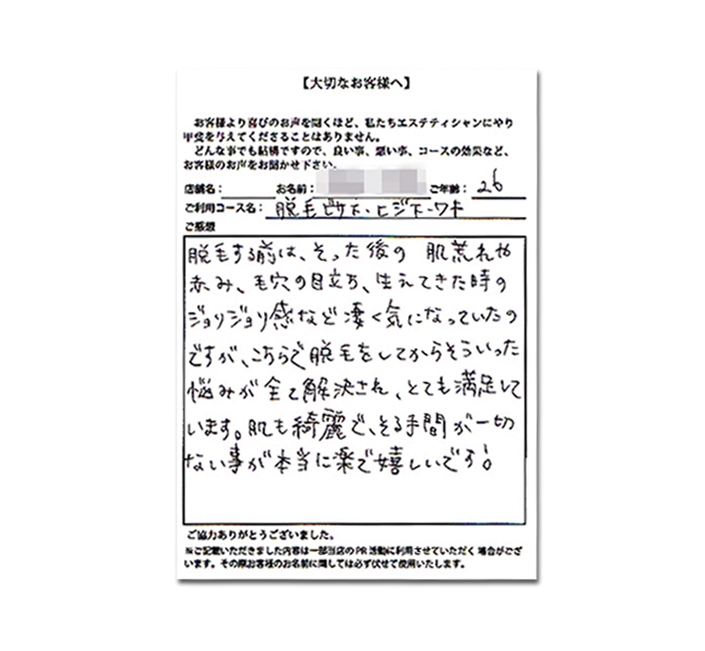 【大切なお客様へ】
お客様より喜びのお声を聞くほど、私たちエステティシャンにやり
甲斐を与えてくださることはありません。
どんな事でも結構ですので、良い事、悪い事、コースの効果など、
お客様のお声をお聞かせ下さい。
店舗名： お名前： ご年齢： 26
ご利用コース名： 脱毛ヒザ下・ヒジ下・ワキ
ご感想
脱毛する前は、そった後の 肌荒れや
赤み、毛穴の目立ち、生えてきた時の
ジョリジョリ感など凄く気になっていたの
ですが、こちらで脱毛をしてからそういった
悩みが全て解決され、とても満足して
います。肌も綺麗で、そる手間が一切
ない事が本当に楽で嬉しいです！
ご協力ありがとうございました。
※ご記載いただきました内容は一部当店のPR活動に利用させていただく場合がござ
います。その際お客様のお名前に関しては必ず伏せて使用いたします。